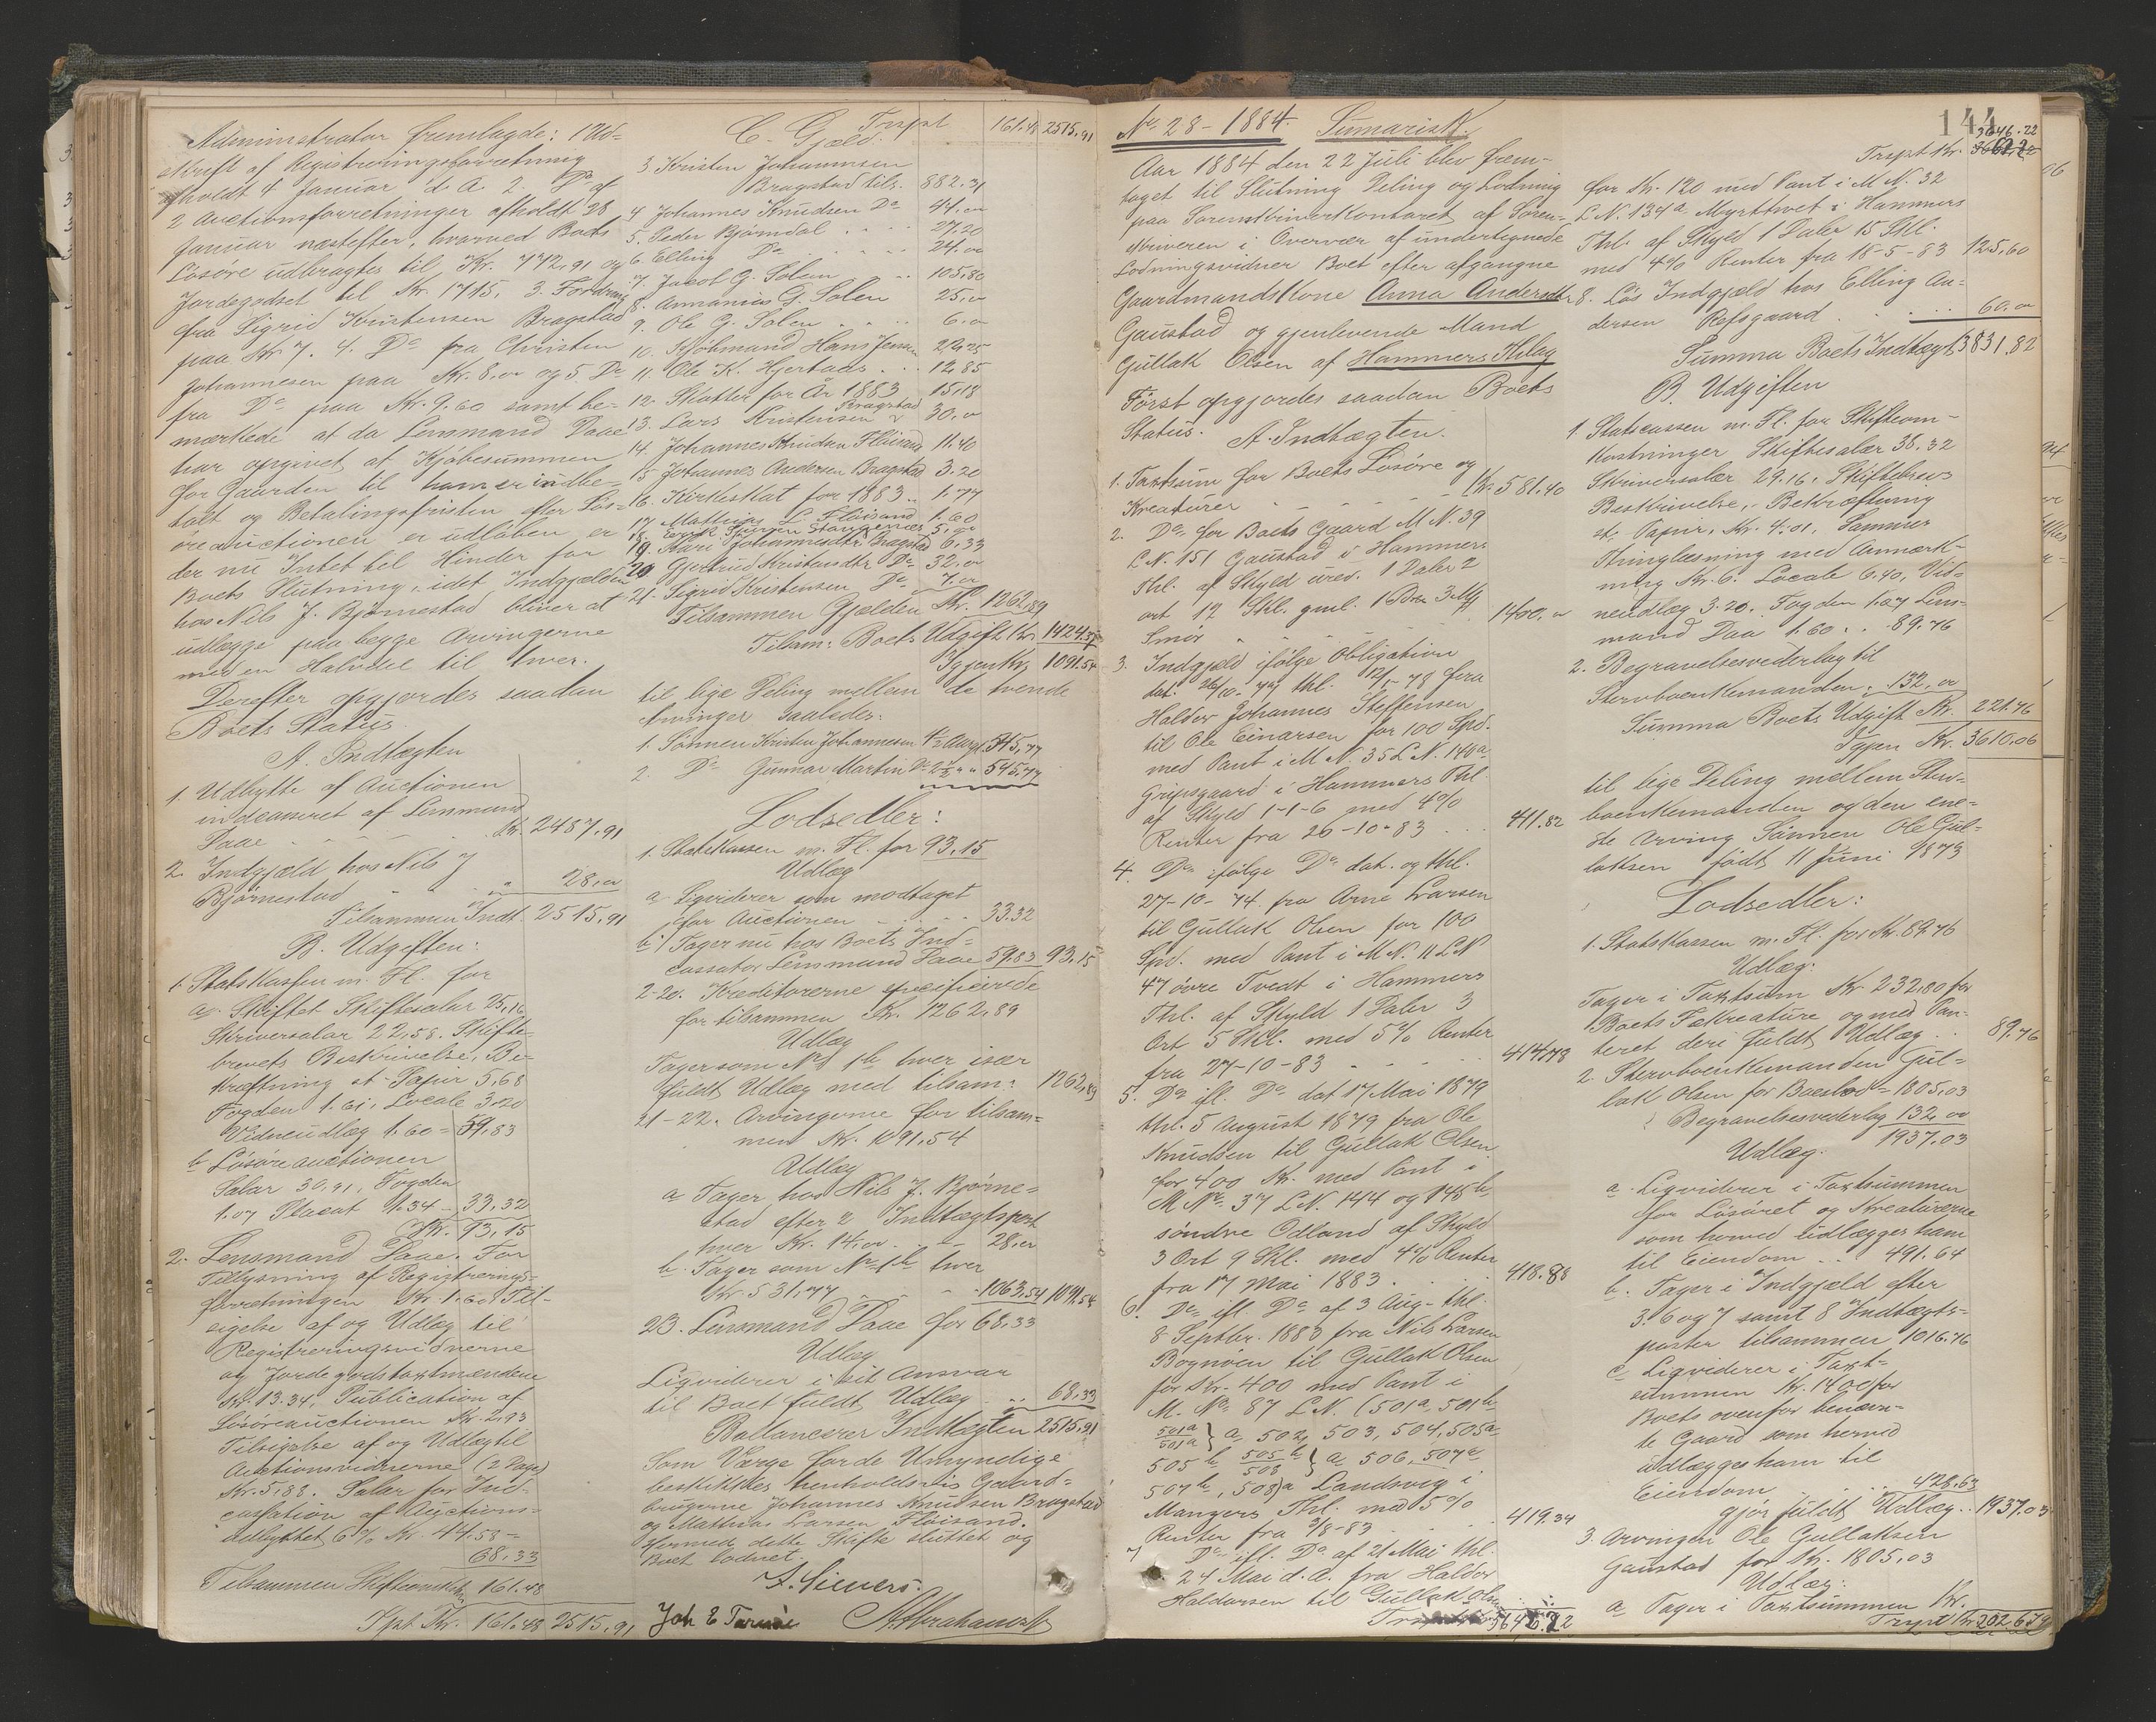 Administrator fremlagde: 1 Ud-
skrift af Registreringsforretning
afholdt 4 Januar d. A. 2. Do af
2 Auctionsforretninger afholdt 28
Januar næstefter, hvorved Boets
Løsøre udbragtes til Kr. 772,91 og
Jordegodset til Kr. 1715, 3. Fordring
fra Sigrid Kristensen Bragstad
paa Kr 7. 4. Do fra Christen
Johannesen paa Kr. 8,00 og 5. Do
fra Do paa Kr. 9.60 samt be-
mærkede at da Lensmand Daae
har opgivet at Kjøbesummen
for Gaarden til ham er indbe-
talt og Betalingsfristen efter Løs-
øreauctionen er udløben er
der nu Intet til Hinder for
Boets Slutning, idet Indgjælden
hos Nils J. Bjørnestad bliver at
udlægge paa begge Arvingerne
med en Halvdel til hver.
Derefter opgjordes saadan
Boets Status.
A. Indtægten
1. Udbytte af Auctionen
indcasseret af Lensmand
Daae Kr. 2487,91
2. Indgjæld hos Nils J
Bjørnestad " 28,00
Tilsammen Indt. 2515,91
B. Udgiften:
1. Statskassen m. Fl. for
a. Skiftet Skiftesalar 25,16
Skriversalar 22,58. Skifte-
brevets Beskrivelse, Be-
kræftning st. Papir 5,68
Fogden 1.61, Locale 3,20
Vidneudlæg 1.60 = 59,83
b Løsøreauctionen
Salar 30,91, Fogden
1.07 Placat 1.34 - 33,32
Kr. 93,15
2. Lensmand Daae. For
Tillysning af Registrerings-
forretningen Kr. 1.60. Til-
sigelse af og Udlæg til
Registreringsvidnerne
og Jordegodstaxtmændene
Kr. 13.34, Publication af
Løsøreauctionen Kr. 2,93
Tilsigelse af og Udlæg til
Auctionsvidnerne (2 Dage)
Kr. 5,88. Salar for Ind-
cassation af Auctions-
udbyttet 6% Kr. 44.58 =
68,33
Tilsammen Skifteomk. 161.48
Tpt Kr. 161.48 2515,91
Trspt 161.48 2515,91
C. Gjæld.
3 Kristen Johannesen
Bragstad tils. 882.31
4 Johannes Knudsen Do 44,00
5. Peder Bjørndal 27.20
6 Elling Do 24,00
7 Jacob G. Solem 105,80
8. Annanias G. Solem 25,00
9. Ole G. Solem 6,00
10. Kjøbmand Hans Jensen
11. Ole K. Hjertaas 12,85
12. Skatter for År 1883 15,18
13. Lars Kristensen Bragstad 30,00
14. Johannes Knudsen Fløisand 11.40
15 Johannes Andersen Bragstad 3.20
16. Kirkeskat for 1883 1.77
17 Mathias L. Fløisand 1.60
19. Kari Johannesdtr Bragstad 6.33
20 Gjertrud Kristensdtr Do 32,00
21. Sigrid Kristensen Do 7,00
Tilsammen Gjælden Kr. 1262,89
Tilsm: Boets Udgift Kr 1424.37
Igjen Kr. 1091.54
til lige Deling mellem de tvende
Arvinger saaledes:
1. Sønnen Kristen Johannesen 545,77
2. Do Gunnar Martin Do 545.77
Lodsedler:
1. Statskassen m. Fl. for 93.15
Udlæg
a Liqviderer som modtaget
for Auctionen 33.32
b Tager nu hos Boets Ind-
cassator Lensmand Daae 59.83 93,15
2-20. Kreditorerne specificerede
for tilsammen Kr. 1262,89
Udlæg
Tager som No 1 b hver især
fuldt Udlæg med tilsam: 1262,89
21-22. Arvingerne for tilsam-
men Kr. 1091.54
Udlæg
a Tager hos Nils J. Bjørne-
stad efter 2 Indtægtspost
hver Kr. 14.00 28,00
b. Tager som No 1 b hver
Kr. 531,77 1063,54 1091,54
23. Lensmand Daae for 68.33
Udlæg
Liqviderer i sit Ansvar
til Boet fuldt Udlæg 68.33
Ballancerer Indtægten 2515,91
Som Værge for de Umyndige
beskikkes henholdsvis Gaard-
brugerne Johannes Knudsen Bragstad
og Mathias Larsen Fløisand.
Hermed dette Skifte sluttet og
Boet lodnet.
A. Sievers.
A. Abrahamsen
No 28 - 1884. Sumarisk.
Aar 1884 den 22 Juli blev frem-
taget til Slutning Deling og Lodning
paa Sorenskriverkontoret af Soren-
skriveren i Overvær af undertegnede
Lodningsvidner Boet efter afgangne
Gaardmandskone Anna Andersdtr
Gaustad og gjenlevende Mand
Gullak Olsen af Hammers Thlag
Først opgjordes saadan Boets
Status. A. Indtægten.
1. Taxtsum for Boets Løsøre og
Kreaturer Kr. 581.40
2. Do for Boets Gaard M N. 39
L N. 151 Gaustad i Hammers
Thl. af Skyld ured. 1 Daler 2
ort 12 Skl. gml. 1 Bpd 3 Mk
Smør 1400,00
3. Indgjæld ifølge Obligation
Haldor Johannes Steffensen
til Ole Einarsen for 100 Spd.
med Pant i M N. 35 L N. 140 a
Gripsgaard i Hammers Thl.
af Skyld 1-1-6 med 4%
Renter fra 26-10-83 411.82
4. Do ifølge Do dat. og thl.
27-10-74 fra Arne Larsen
til Gullak Olsen for 100
Spd. med Pant i M N. 11 L N
47 øvre Tvedt i Hammers
Thl. af Skyld 1 Daler 3
Ort 5 Skl. med 5% Renter
fra 27-10-83 414,78
5. Do ifl. Do dat 17 Mai 1879
thl. 5 August 1879 fra Ole
Knudsen til Gullak Olsen
for 400 Kr. med Pant i
M No. 37 L N. 144 og 145 b
søndre Odland af Skyld
3 Ort 9 Skl. med 4% Renter
fra 17 Mai 1883 418.88
6. Do ifl. Do af 3 Aug- thl.
8 Septbr. 1883 fra Nils Larsen
Bognøen til Gullak Olsen
for Kr. 400 med Pant i
M. No. 87 L N. (501a, 501b
501a/501a } a 502, 503, 504, 505a
505 b 505 b/508 } a 506, 507a
507 b, 508) a Landsvig i
Mangers Thl. med 5%
Renter fra 3/8-83 419.34
7 Do ifl. Do af 21 Mai thl.
24 Mai d. A. fra Haldor
Haldorsen til Gullak Olsen
144
3646.22
Trspt Kr.
for Kr. 120 med Pant i M N. 32
L N. 134a, Myrtvet i Hammers
Thl. af Skyld 1 Daler 15 Skl.
med 4% Renter fra 18-5-83 125,60
8. Løs Indgjæld hos Elling An-
dersen Refsgaard 60,00
Summa Boets Indtægt 3831,82
B. Udgiften
1. Statscassen m. Fl. for Skifteom-
kostninger Skiftesalær 38.32
Skriversalær 29.16, Skiftebrevs
Beskrivelse, Bekræftning
st. Papir, Kr. 4.01, Sammes
Thinglæsning med Anmærk-
ning Kr. 6. Locale 6.40, Vid-
neudlæg 3.20. Fogden 1.07 Lens-
mand Daa 1.60 89.76
2. Begravelsesvederlag til
Stervboenkemanden 132,00
Summa Boets Udgift Kr. 221.76
Igjen Kr. 3610.06
til lige Deling mellem Sterv-
boenkemanden og den ene-
ste Arving Sønnen Ole Gul-
laksen født 11 Juni 1873
Lodsedler:
1. Statskassen m. Fl. for Kr. 89.76
Udlæg.
Tager i Taxtsum Kr. 232,80 for
Boets Fækreature og med Pan-
teret deri fuldt Udlæg 89.76
2. Stervboenkemanden Gul-
lak Olsen for Boeslod = 1805,03
Begravelsesvederlag 132,00
1937.03
Udlæg.
a. Liqviderer i Taxtsummen
for Løsøret og Kreaturerne
som herved udlægges ham
til Eiendom 491.64
b. Tager i Indgjæld efter
3. 6 og 7 samt 8 Indtægts-
poster tilsammen 1016.76
c Liqviderer i Taxt-
summen Kr. 1400 for
Boets ovenfor benævn-
te Gaard som herved
udlægges ham til
Eiendom 428.63
gjør fuldt Udlæg 1937.03
3. Arvingen Ole Gullaksen
Gaustad for Kr. 1805.03
Udlæg:
a Tager i Taxtsummen Kr.